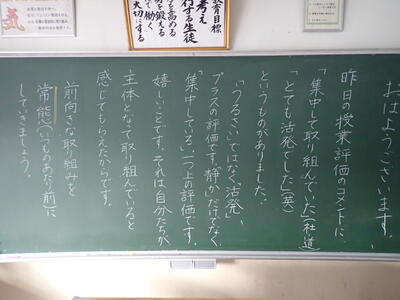 おはようございます。
昨日の授業評価のコメントに、
「集中して取り組んでいた」(社道)
「とても活発でした」(英)
というものがありました。
「うるさい」ではなく「活発」、
プラスの評価です。「静か」だけでなく
「集中している」、一つ上の評価です。
嬉しいことです。それは自分たちが
主体となって取り組んでいると
感じてもらえたからです。
前向きな取り組みを
常態(いつものあたり前)に
していきましょう。
教育目標
考え
行する生徒
を高める
を鍛える
で働く
大切にする